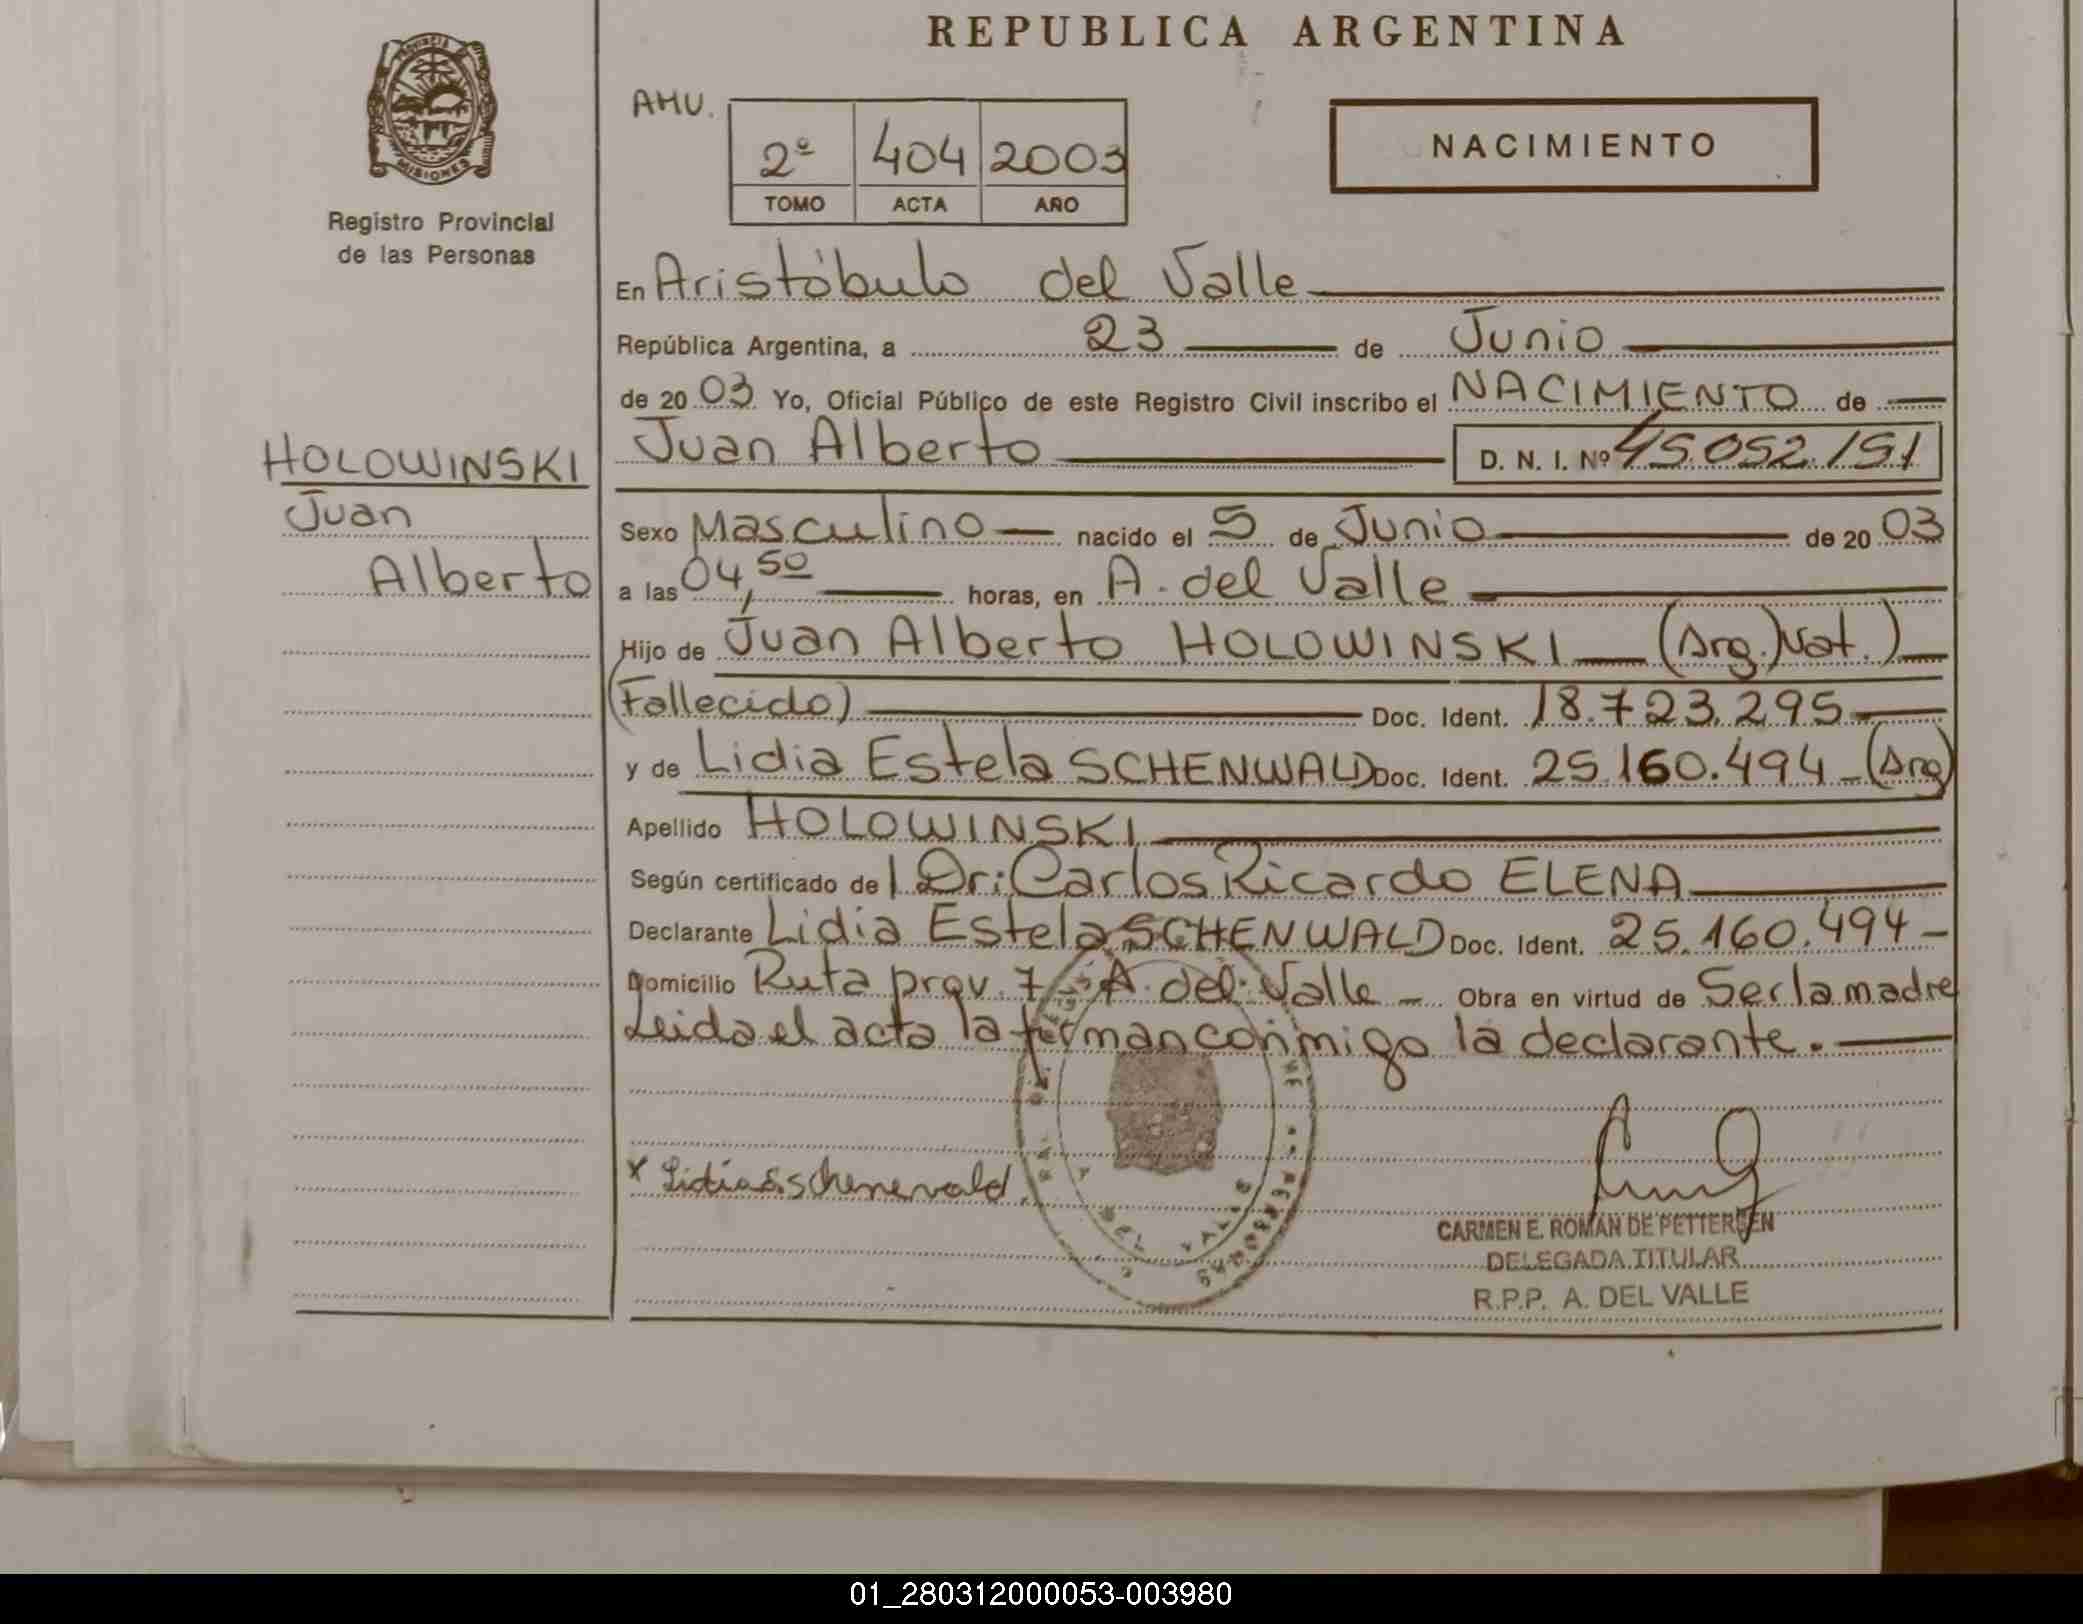 REPUBLICA ARGENTINA
PROVINCIA DE
MISIONES
Registro Provincial
de las Personas
AMU.
2º 404 2003
TOMO ACTA AÑO
NACIMIENTO
En Aristóbulo del Valle
República Argentina, a 23 de Junio
de 2003 Yo, Oficial Público de este Registro Civil inscribo el NACIMIENTO de
Juan Alberto D. N. I. Nº 45.052.151
HOLOWINSKI
Juan
Alberto
Sexo Masculino nacido el 5 de Junio de 2003
a las 04,50 horas, en A. del Valle
Hijo de Juan Alberto HOLOWINSKI (Arg.) Nat.)
(Fallecido) Doc. Ident. 18.723.295
y de Lidia Estela SCHENWALD Doc. Ident. 25.160.494 (Arg)
Apellido HOLOWINSKI
Según certificado de l Dr: Carlos Ricardo ELENA
Declarante Lidia Estela SCHENWALD Doc. Ident. 25.160.494
Domicilio Ruta prov. 7 - A. del Valle - Obra en virtud de Ser la madre
Leida el acta la firman conmigo la declarante.
x Lidia
CARMEN E. ROMAN DE PETTERSEN
DELEGADA TITULAR
R.P.P. A. DEL VALLE
01_280312000053-003980